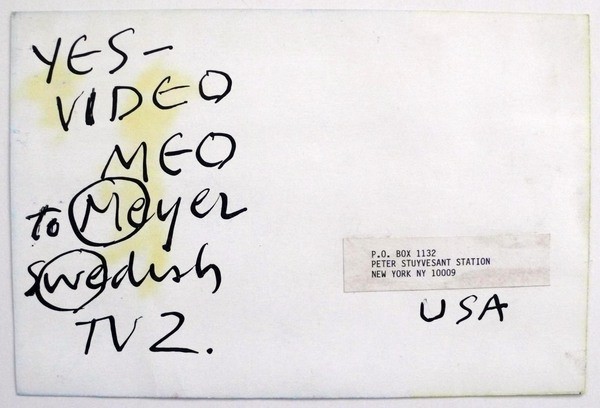 YES-
VIDEO
MEO
to Meyer
Swedish
TV 2.
P.O. BOX 1132
PETER STUYVESANT STATION
NEW YORK NY 10009
USA